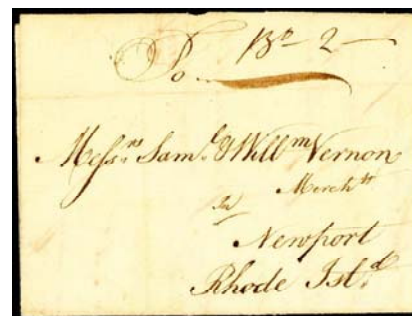 To 13ᵒ 2
Messʳˢ Samˡ & Willᵐ Vernon
Merchᵗˢ
In
Newport
Rhode Islᵈ